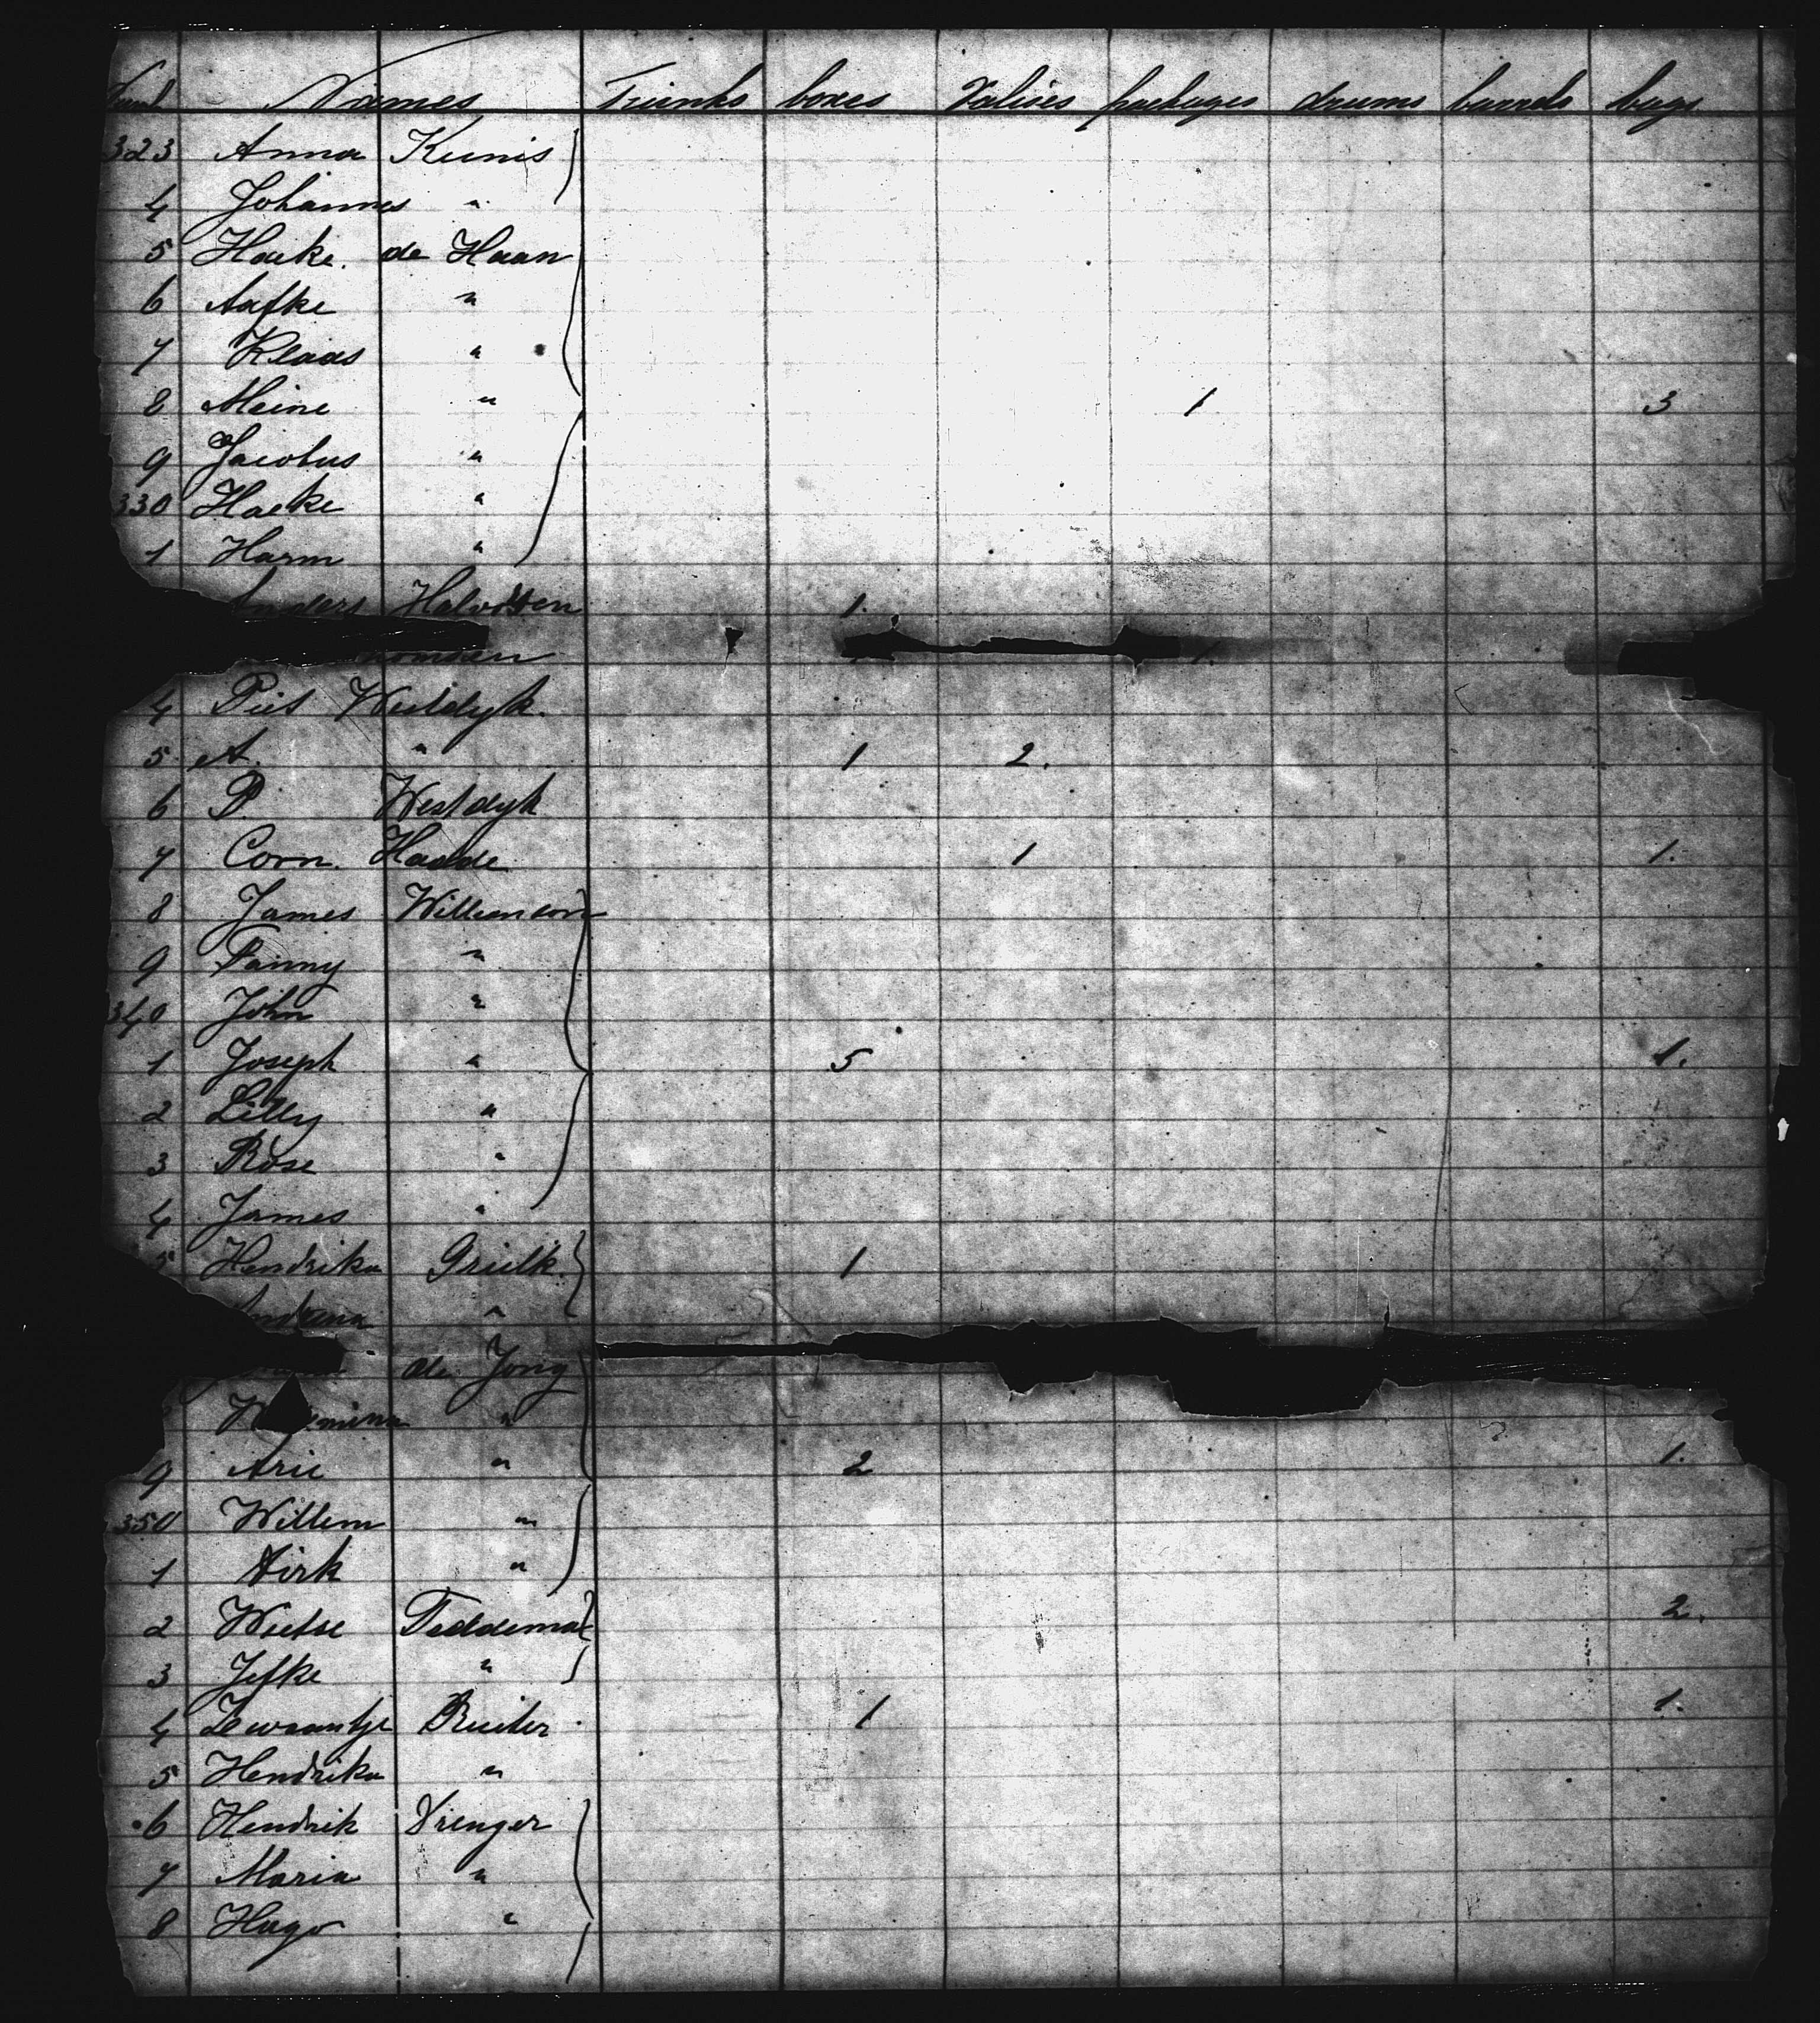 Numb Names Trunks boxes Valises packages drums barrels bags
323 Anna Kunis
4 Johannes "
5 Haeke. de Haan
6 Aafke "
7 Klaas "
8 Meine " 1 3
9 Jacobus "
330 Haeke "
1 Harm "
Anders Halvorsen 1.
1.
4 Piet Westdyk.
5 A. " 1 2.
6 P. Westdyk
7 Corn. Hadde 1 1.
8 James Williamson
9 Fanny "
340 John "
1 Joseph " 5 1.
2 Lilly "
3 Rose "
4 James "
5 Hendrika 1
"
de Jong
"
9 Arie " 2 1.
350 Willem "
1 Dirk "
2 Wietse Teddema 2.
3 Jefke "
4 Ruiter 1 1.
5 Hendrika "
6 Hendrik Drenger
7 Maria "
8 Hugo "